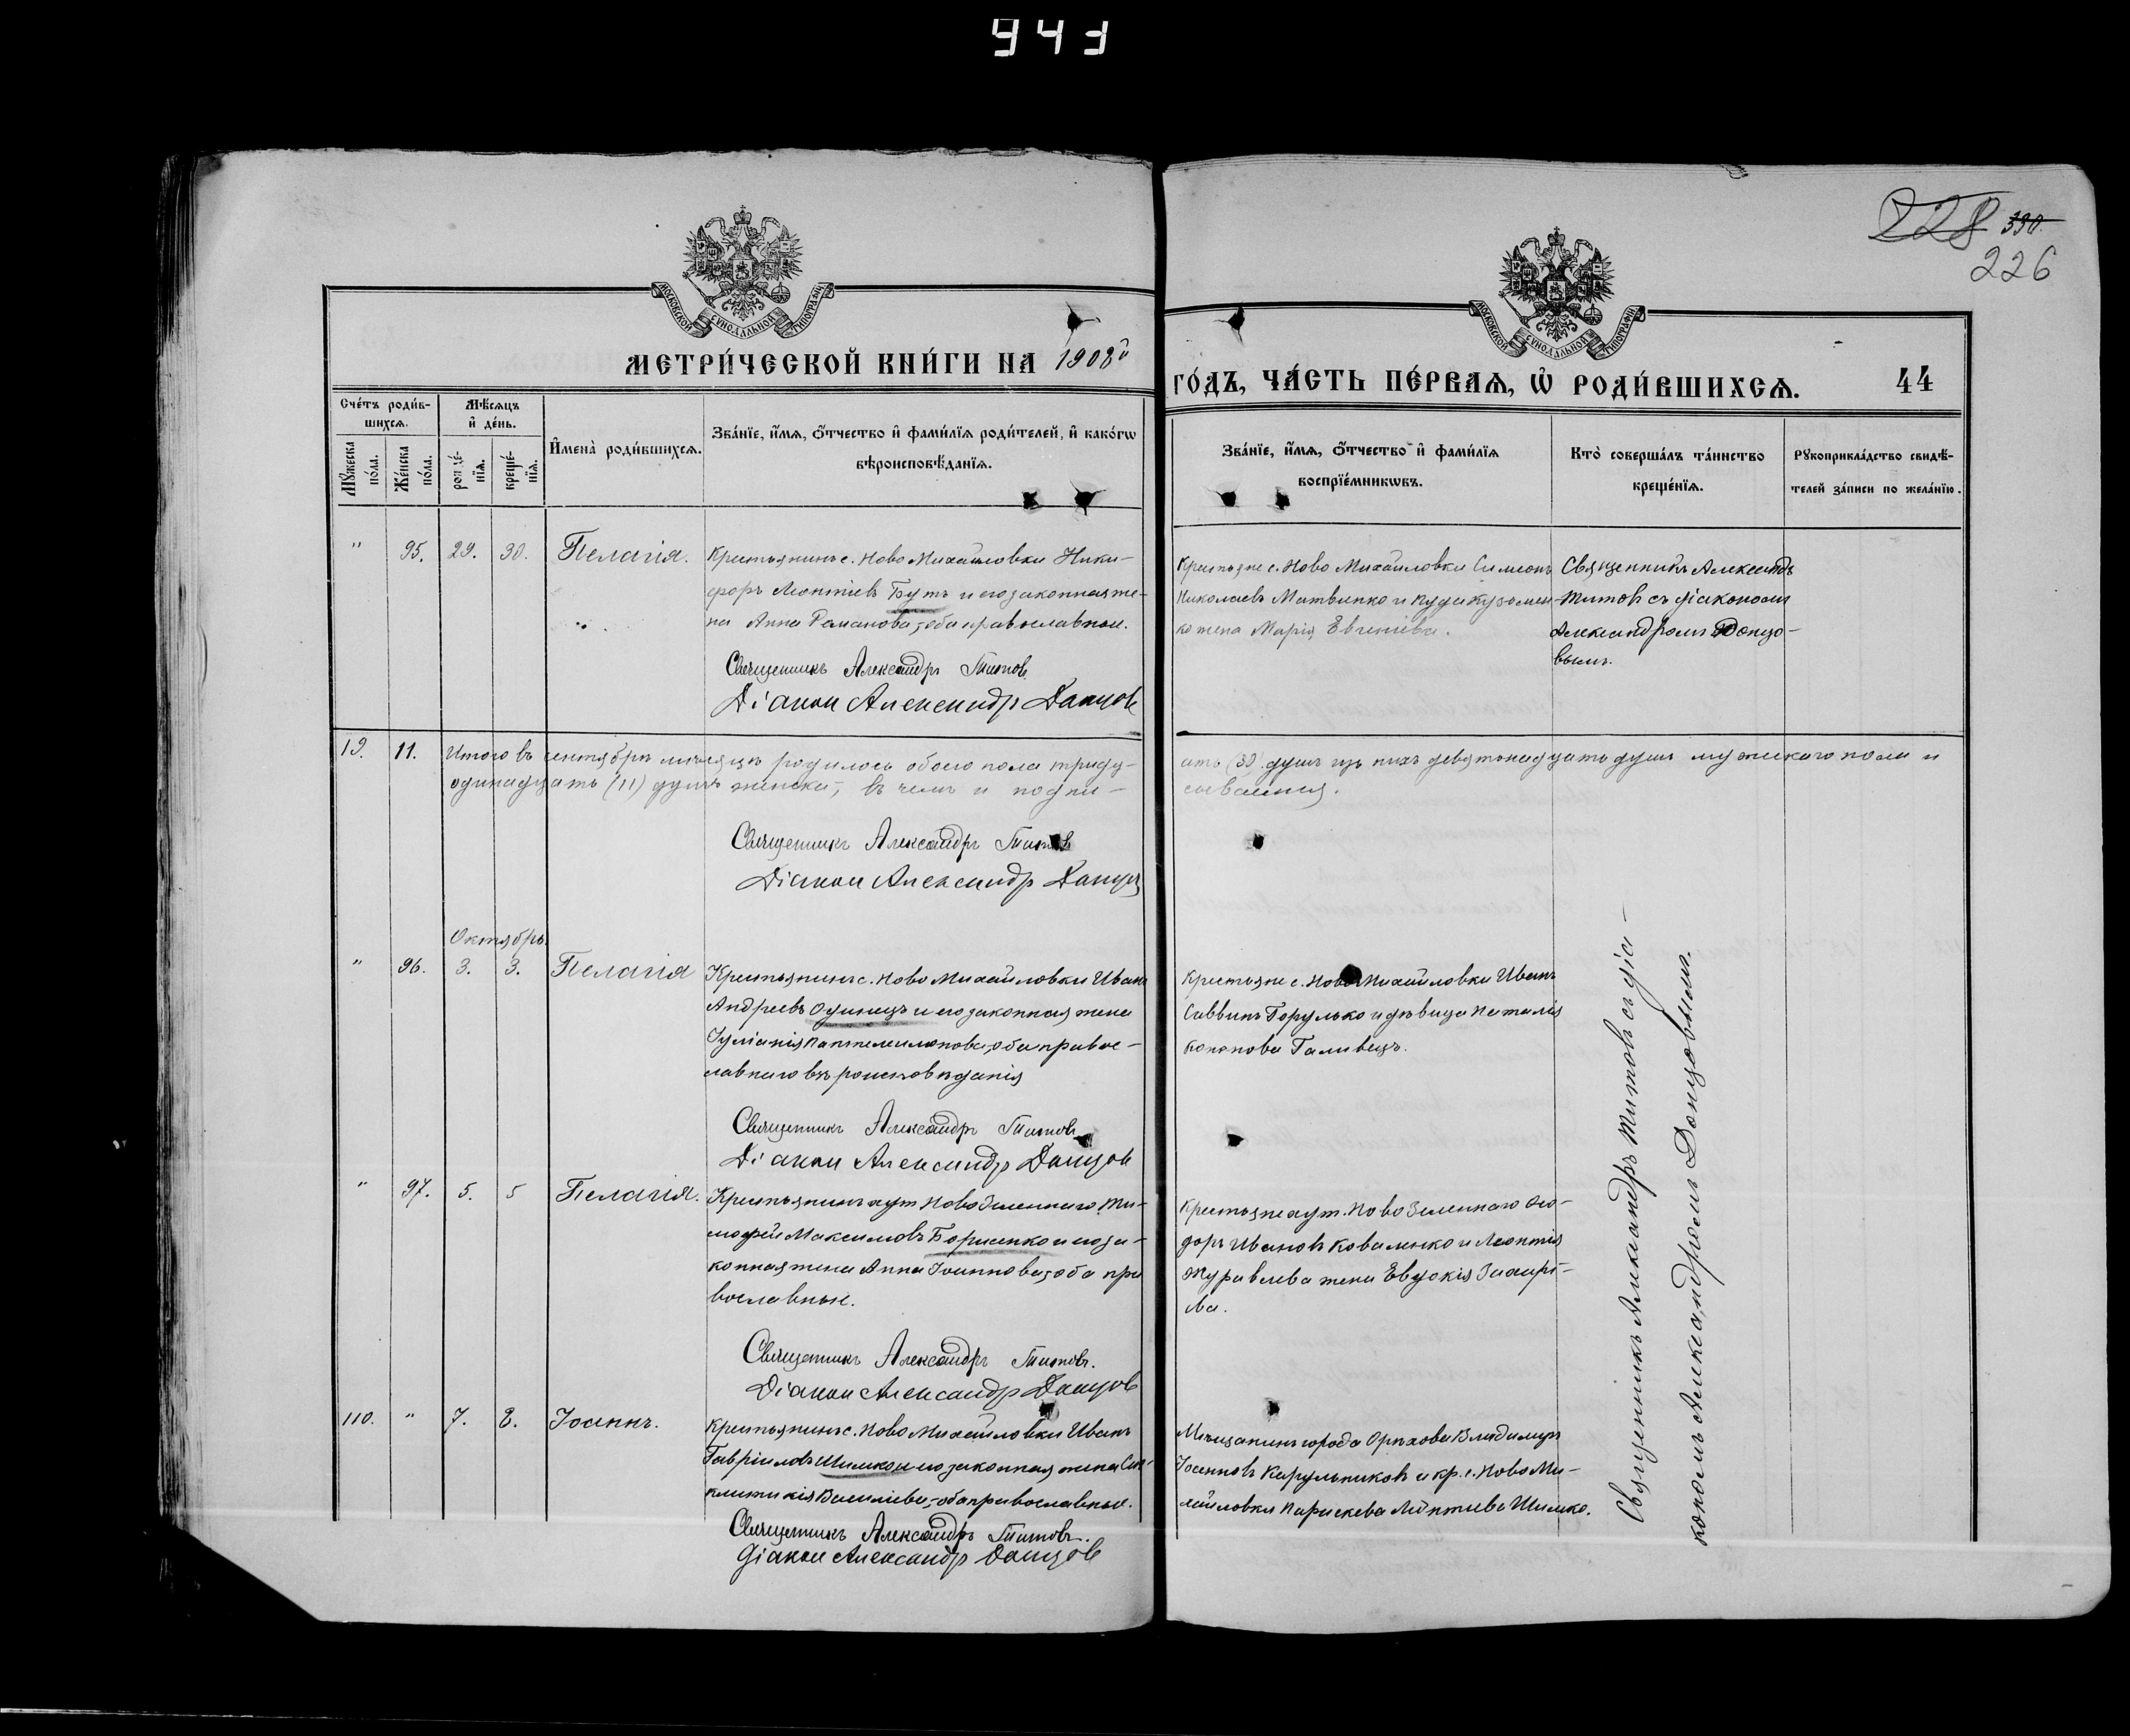 943
228 330.
226
МОСКОВСКОЙ СУНОДАЛЬНОЙ ТИПОГРАФІИ
МОСКОВСКОЙ СУНОДАЛЬНОЙ ТИПОГРАФІИ
МЕТРИ́ЧЕСКОЙ КНИ́ГИ НА 1908й
ГО́ДЪ, ЧА́СТЬ ПЕ́РВАѦ, Ѡ҆ РОДИ́ВШИХСѦ. 44
Сче́тъ роди́в-
шихсѧ.
Мѣ́сѧцъ
и҆ де́нь.
Мꙋ́жеска
по́ла.
Же́нска
по́ла.
рожде́-
нїѧ.
креще́-
нїѧ.
И҆мена̀ роди́вшихсѧ.
Зва́нїе, и҆́мѧ, ѻ҆́тчество и҆ фами́лїѧ роди́телей, и҆ како́гѡ
вѣроисповѣ́данїѧ.
Зва́нїе, и҆́мѧ, ѻ҆́тчество и҆ фами́лїѧ
воспрїе́мникѡвъ.
Кто̀ соверша́лъ та́инство
креще́нїѧ.
Рꙋкоприкла́дство свидѣ́-
телей за́писи по жела́нїю.
" 95. 29. 30. Пелагія.
Крестьянинъ с. Ново Михайловки Ники-
форъ Леонтіев Бутъ и его законная же-
на Анна Романова, оба православные.
Священникъ Александръ Титовъ
Діакон Александр Данцов
Крестьяне с. Ново Михайловки Симеонъ
Николаевъ Матвиенко и
жена Марія Евгеніева.
Священникъ Александръ
Титовъ съ діакономъ
Александромъ Донцо-
вымъ.
19. 11. Итого въ сентябрѣ мѣсяцѣ родилось обоего пола тридц-
ать (30) душъ изъ нихъ девятьнадцать душъ мужскаго пола и
одинадцать (11) душъ женска, въ чемъ и подпи-
сываемся.
Священникъ Александръ Титовъ
Діакон Александр Данцов
Октябрь.
" 96. 3. 3. Пелагія
Крестьянинъ с. Ново Михайловки Иванъ
Андреевъ Одинецъ и его законная жена
Іуліанія Пантелеимонова, оба правос-
лавнаго вѣроисповѣданія
Священникъ Александръ Титовъ
Діакон Александр Данцов
Крестьяне с. Ново Михайловки Иванъ
Саввинъ Горулько и дѣвица Наталія
Кононова Галивецъ.
" 97. 5. 5 Пелагія.
Крестьянинъ хут. Ново Зеленнаго Ти-
мофей Максимовъ Борисенко и его за-
конная жена Анна Іоаннова, оба пра
вославные.
Священникъ Александръ Титовъ.
Діакон Александр Данцов
Крестьяне хут. Ново Зеленнаго Фео-
доръ Ивановъ Коваленко и Леонтія
Журавлева жена Евдокія Захарі-
ева.
110. " 7. 8. Іоаннъ.
Крестьянинъ с. Ново Михайловки Иванъ
Гавріиловъ Шимко и его законная жена Син-
клитикія Василіева, оба православные.
Священникъ Александръ Титовъ.
Діакон Александр Данцов
Мѣщанинъ города Орѣхова Владимиръ
Іоанновъ Карульниковъ и кр. с. Ново Ми-
хайловки Параскева Леонтиева Шимко.
Священникъ Александръ Титовъ съ діа-
кономъ Александромъ Донцовымъ.